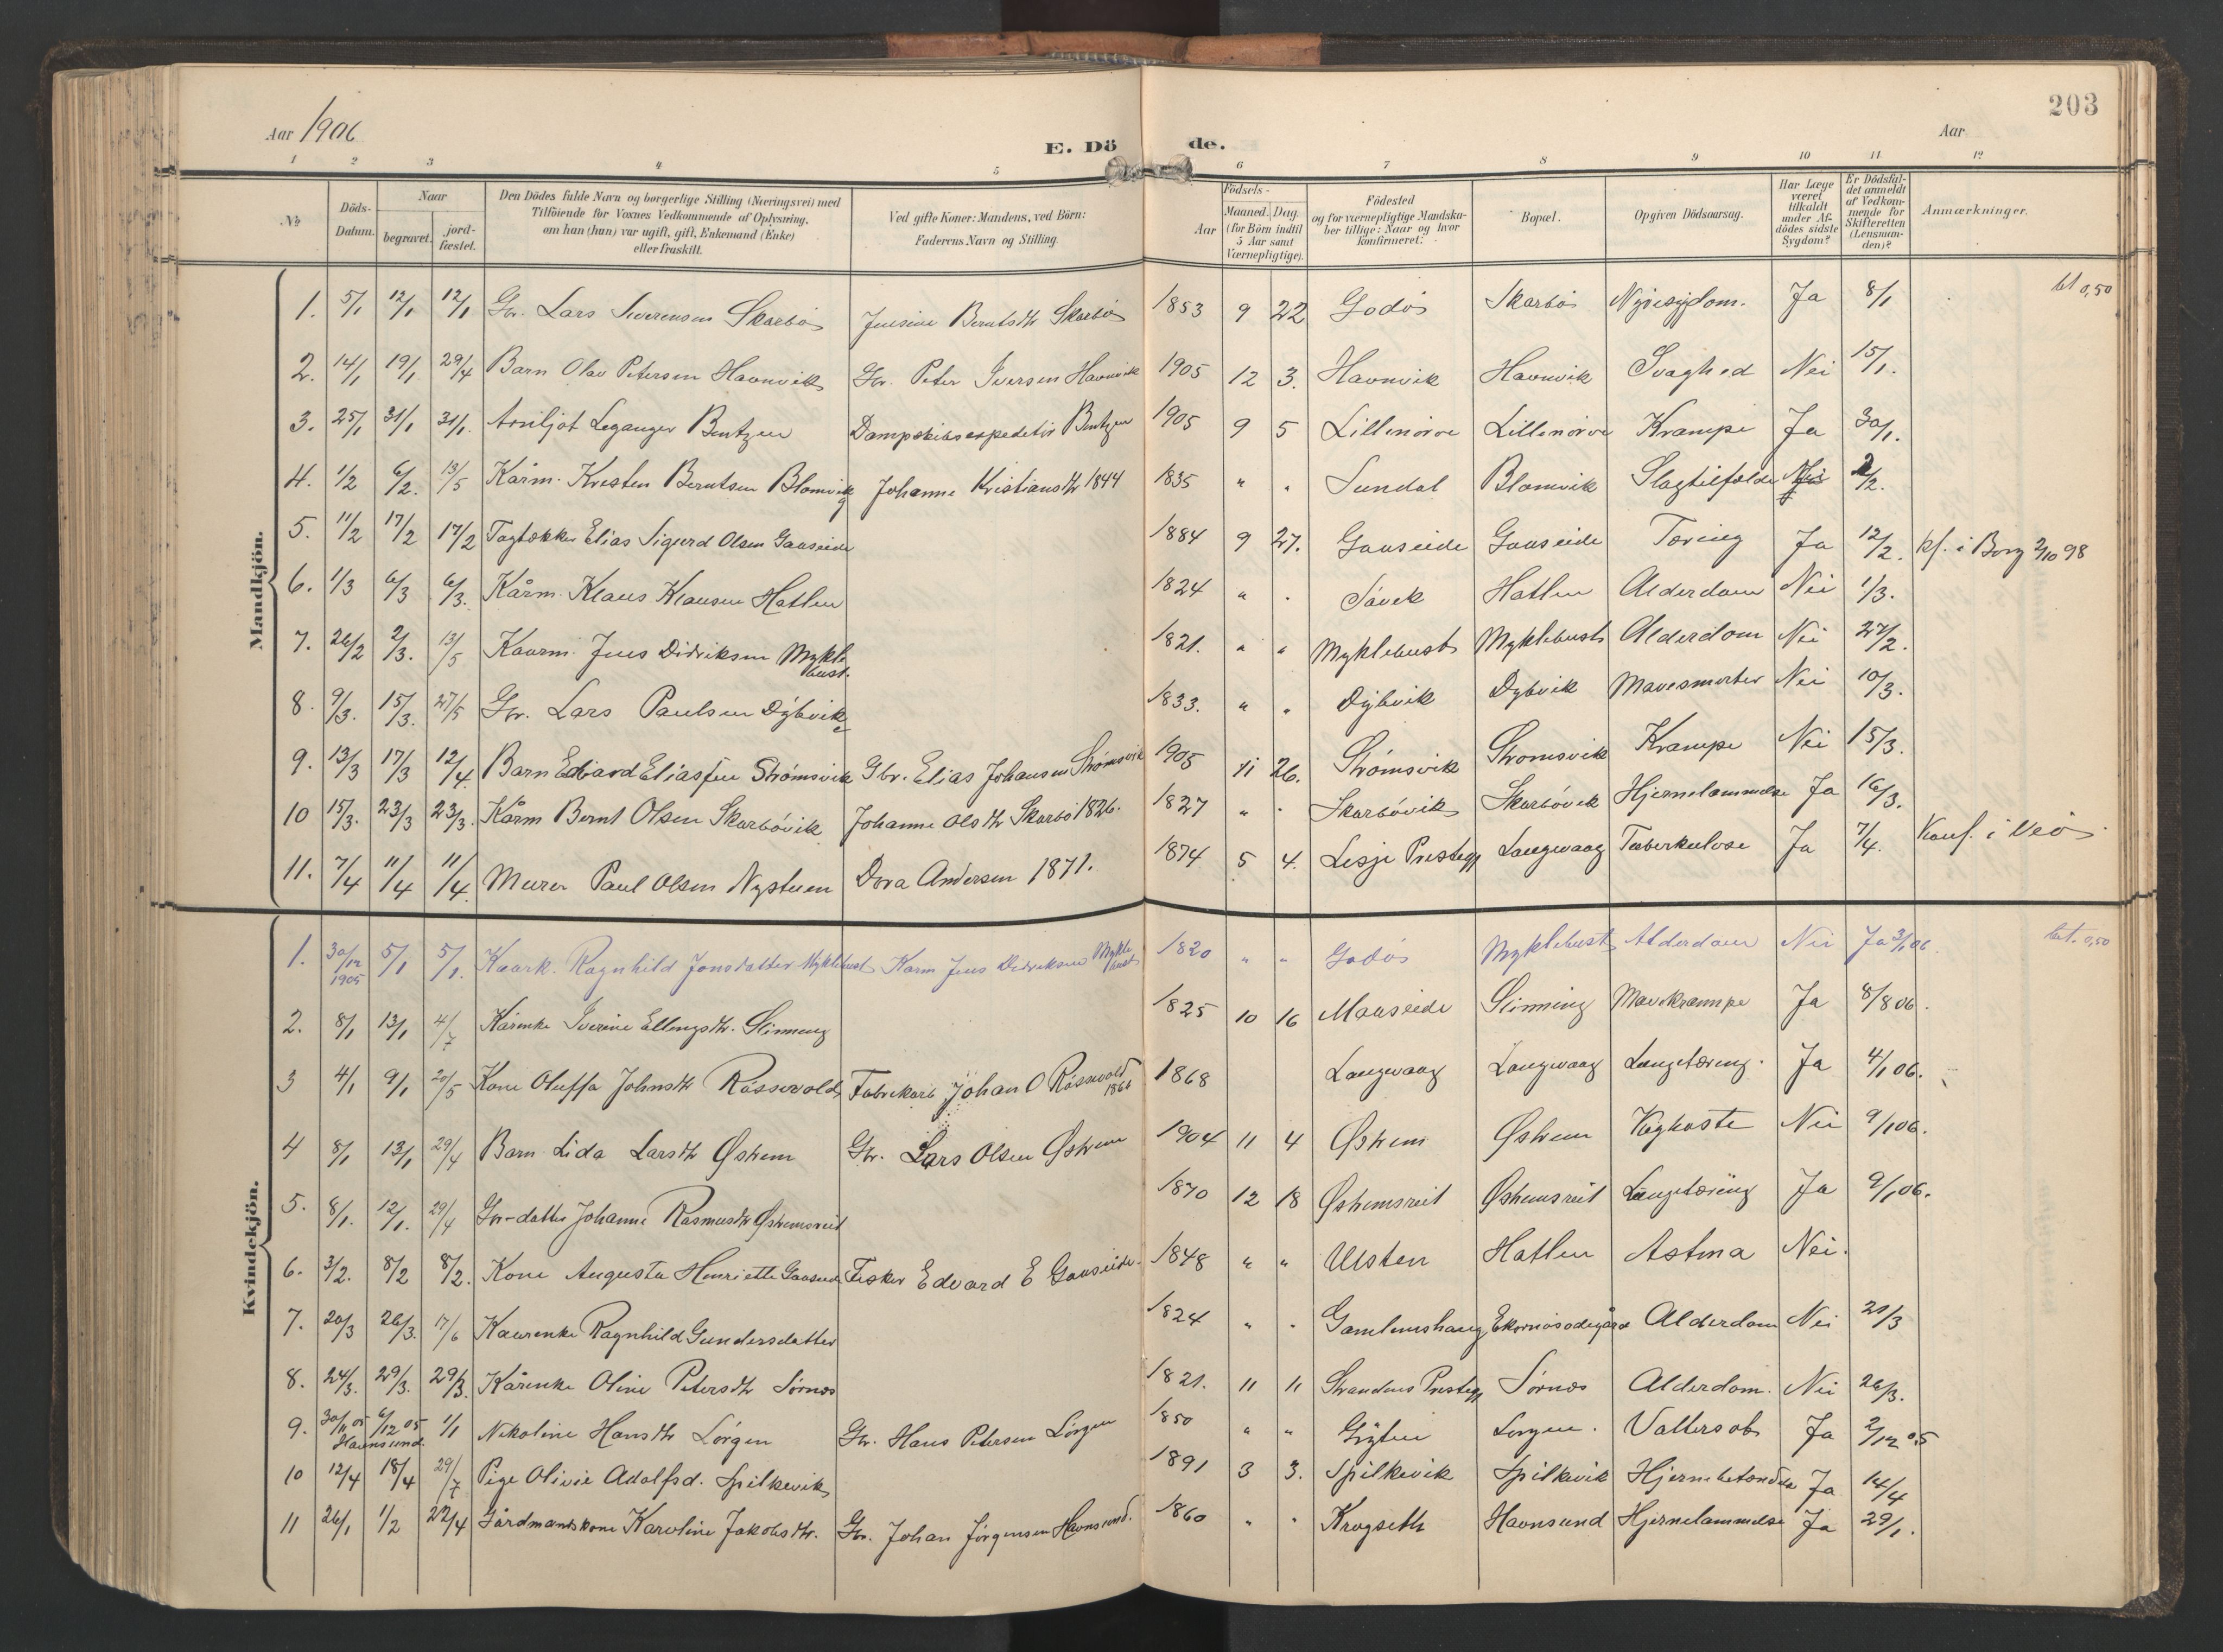 203
Aar 1906
E. Dö de.
Aar
1 2 3 4 5 6 7 8 9 10 11 12
№ Döds-Datum. Naar begravet. jord-fæstet. Den Dödes fulde Navn og borgerlige Stilling (Næringsvei) med Tilföiende for Voxnes Vedkommende af Oplysning, om han (hun) var ugift, gift, Enkemand (Enke) eller fraskilt. Ved gifte Koner: Mandens, ved Börn: Faderens Navn og Stilling. Födsels- Aar Maaned. Dag. (for Börn indtil 5 Aar samt Værnepligtige). Födested og for værnepligtige Mandskaber tillige: Naar og hvor konfirmeret. Bopæl. Opgiven Dödsaarsag. Har Læge været tilkaldt under Afdödes sidste Sygdom? Er Dödsfaldet anmeldt af Vedkommende for Skifteretten (Lensmanden)? Anmærkninger.
Mandkjön.
1. 5/1 12/1 12/1 Gbr. Lars Severensen Skarbö Jensine Berntsdtr Skarbö 1853 9 22 Godö Skarbö Nyresygdom. Ja 8/1 bet 0,50
2. 14/1 19/1 29/4 Barn Olav Petersen Havnvik Gbr. Peter Iversen Havnvik 1905 12 3. Havnvik Havnvik Svaghed Nei 15/1.
3. 25/1 31/1 31/1. Arniljot Leganger Bentzen Dampskibsexpeditör Bentzen 1905 9 5 Lillenörve Lillenörve Krampe Ja 30/1.
4. 1/2 6/2. 13/5 Kårm. Kresten Berntsen Blomvik Johanne Kristiansdtr 1844 1835 " " Sundal Blomvik Slagtilfælde Nei 2/2.
5. 11/2 17/2 17/2 Tagtækker Elias Sigurd Olsen Gaaseide 1884 9 27. Gaaseide Gaaseide Tæring Ja 12/2. kf. i Borg 2/10 98
6. 1/3 6/3 6/3. Kårm. Klaus Klausen Hatlen 1824 " " Sävek Hatlen Alderdom Nei 1/3.
7. 26/2 2/3. 13/5 Kaarm. Jens Didriksen Myklebust. 1821. " " Myklebust Myklebust Alderdom Nei 27/2.
8. 9/3. 15/3. 27/5 Gbr. Lars Paulsen Dybvik 1833. " " Dybvik Dybvik Mavesmerter Nei 10/3.
9. 13/3 17/3 12/4. Barn Edvard Eliassen Strömsvik Gbr. Elias Johansen Strömsvik 1905 11 26. Strömsvik Strömsvik Krampe Nei 15/3.
10 15/3. 23/3 23/3. Kårm Bernt Olsen Skarbövik Johanne Olsdtr Skarbö 1826. 1827 " " Skarbövik Skarbövik Hjernelammelse Ja 16/3.
11. 7/4 11/4 11/4. Murer Paul Olsen Nystuen Dora Andersen 1871. 1874 5 4. Lesje Prestegj Langevaag Tuberkulose Ja 7/4. Konf. i Veö.
Kvindekjön.
1. 30/12 1905 5/1 5/1. Kaark. Ragnhild Jonsdatter Myklebust Karm Jens Didriksen Myklebust 1820 " " Godö Myklebust Alderdom Nei Ja 3/1 06. bet. 0,50
2. 8/1 13/1 4/7 Kårenke Iverine Ellingsdtr. Slinning 1825 10 16 Maaseide Slinning Mavekrampe Ja 8/8 06.
3 4/1 9/1 20/5 Kone Oluffa Johnsdtr Rössevold Fabrikarb Johan O Rössevold 1866 1868 Langevaag Langevaag Lungetæring. Ja 4/1 06.
4 8/1 13/1 29/4 Barn Lida Larsdtr Östrem Gbr. Lars Olsen Östrem 1904 11 4 Östrem Östrem Kighoste Nei 9/1 06.
5. 8/1. 12/1. 29/4 Gbr-datter Johanne Rasmusdtr Östremsreit 1870 12 18 Östremsreit Östremsreit Lungetæring Ja 9/1 06.
6. 3/2. 8/2 8/2. Kone Augusta Henriette Gaaseide Fisker Edvard E Gaaseide. 1848 " " Ulsten Hatlen Astma Nei.
7. 20/3 26/3. 17/6 Kaarenke Ragnhild Gundersdatter 1824 " " Gamlemshaug Ekornäsødegård Alderdom Nei 21/3
8. 24/3. 29/3. 29/3. Kårenke Oline Petersdtr Sörnes 1821. 11 11 Strandens Prestegj Sörnes Alderdom. Nei 26/3.
9. 30/11 05 6/12 05 Havnsund. 1/1 Nikoline Hansdtr Lörgen Gbr. Hans Petersen Lörgen 1850 " " Lörgen. Vattersot Ja 2/12 05
10 12/4 18/4 29/7 Pige Olivie Adolfsd. Spilkevik 1891 3 3. Spilkevik Spilkevik Hjernebetændelse Ja 14/4
11 26/1 1/2 22/4 Gårdmandskone Karoline Jakobsdtr. Gbr. Johan Jörgensen Havnsund. 1860 " " Krogseth Havnsund Hjernelammelse Ja 29/1.